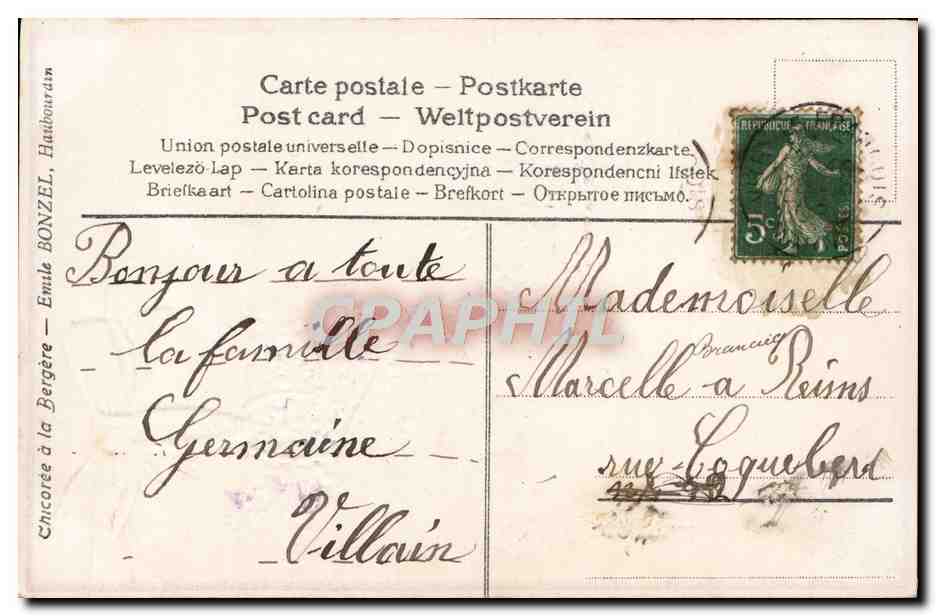 Carte postale – Postkarte
Post card – Weltpostverein
Union postale universelle – Dopisnice – Correspondenzkarte
Levelezö-Lap – Karta korespondencyjna – Korespondencni lístek
Briefkaart – Cartolina postale – Brefkort – Открытое письмо.
Chicorée à la Bergère – Emile BONZEL, Haubourdin
REPUBLIQUE FRANÇAISE
5c
POSTES
Bonjour a toute
la famille
Germaine
Villain
Mademoiselle
Marcelle a Reims
rue Coquebert
CPAPHIL